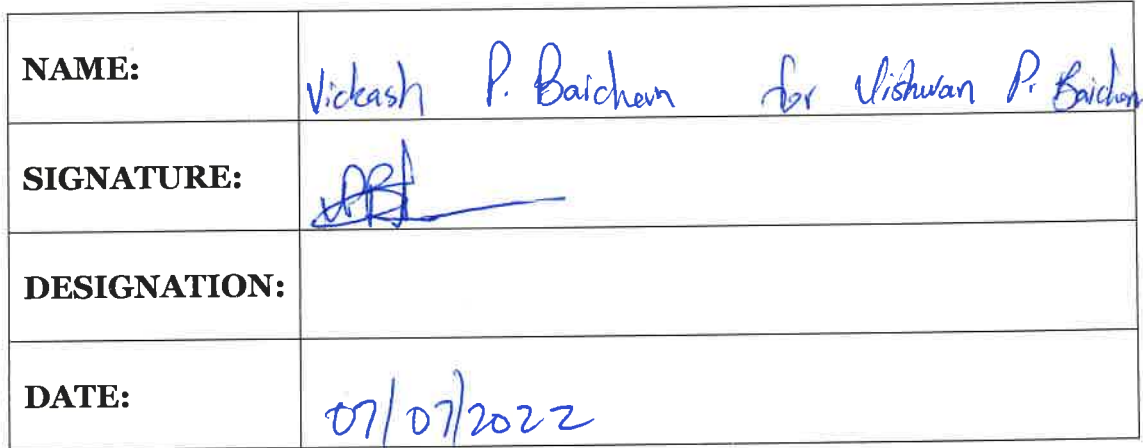 NAME: Vickash P. Baichern for Vishwan P. Baichern
SIGNATURE:
DESIGNATION:
DATE: 07/07/2022